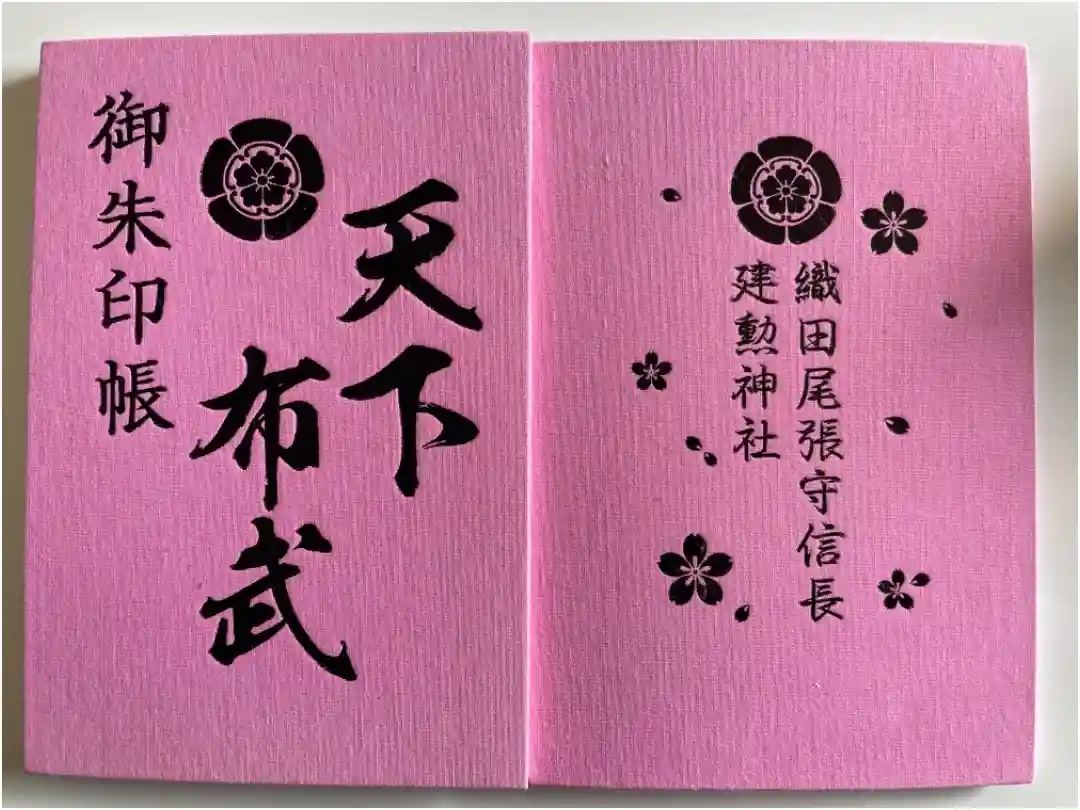 御朱印帳
天下
布武
織田尾張守信長
建勲神社